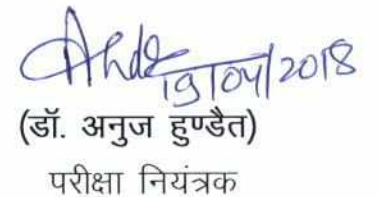 19/04/2018
(डॉ. अनुज हुण्डैत)
परीक्षा नियंत्रक